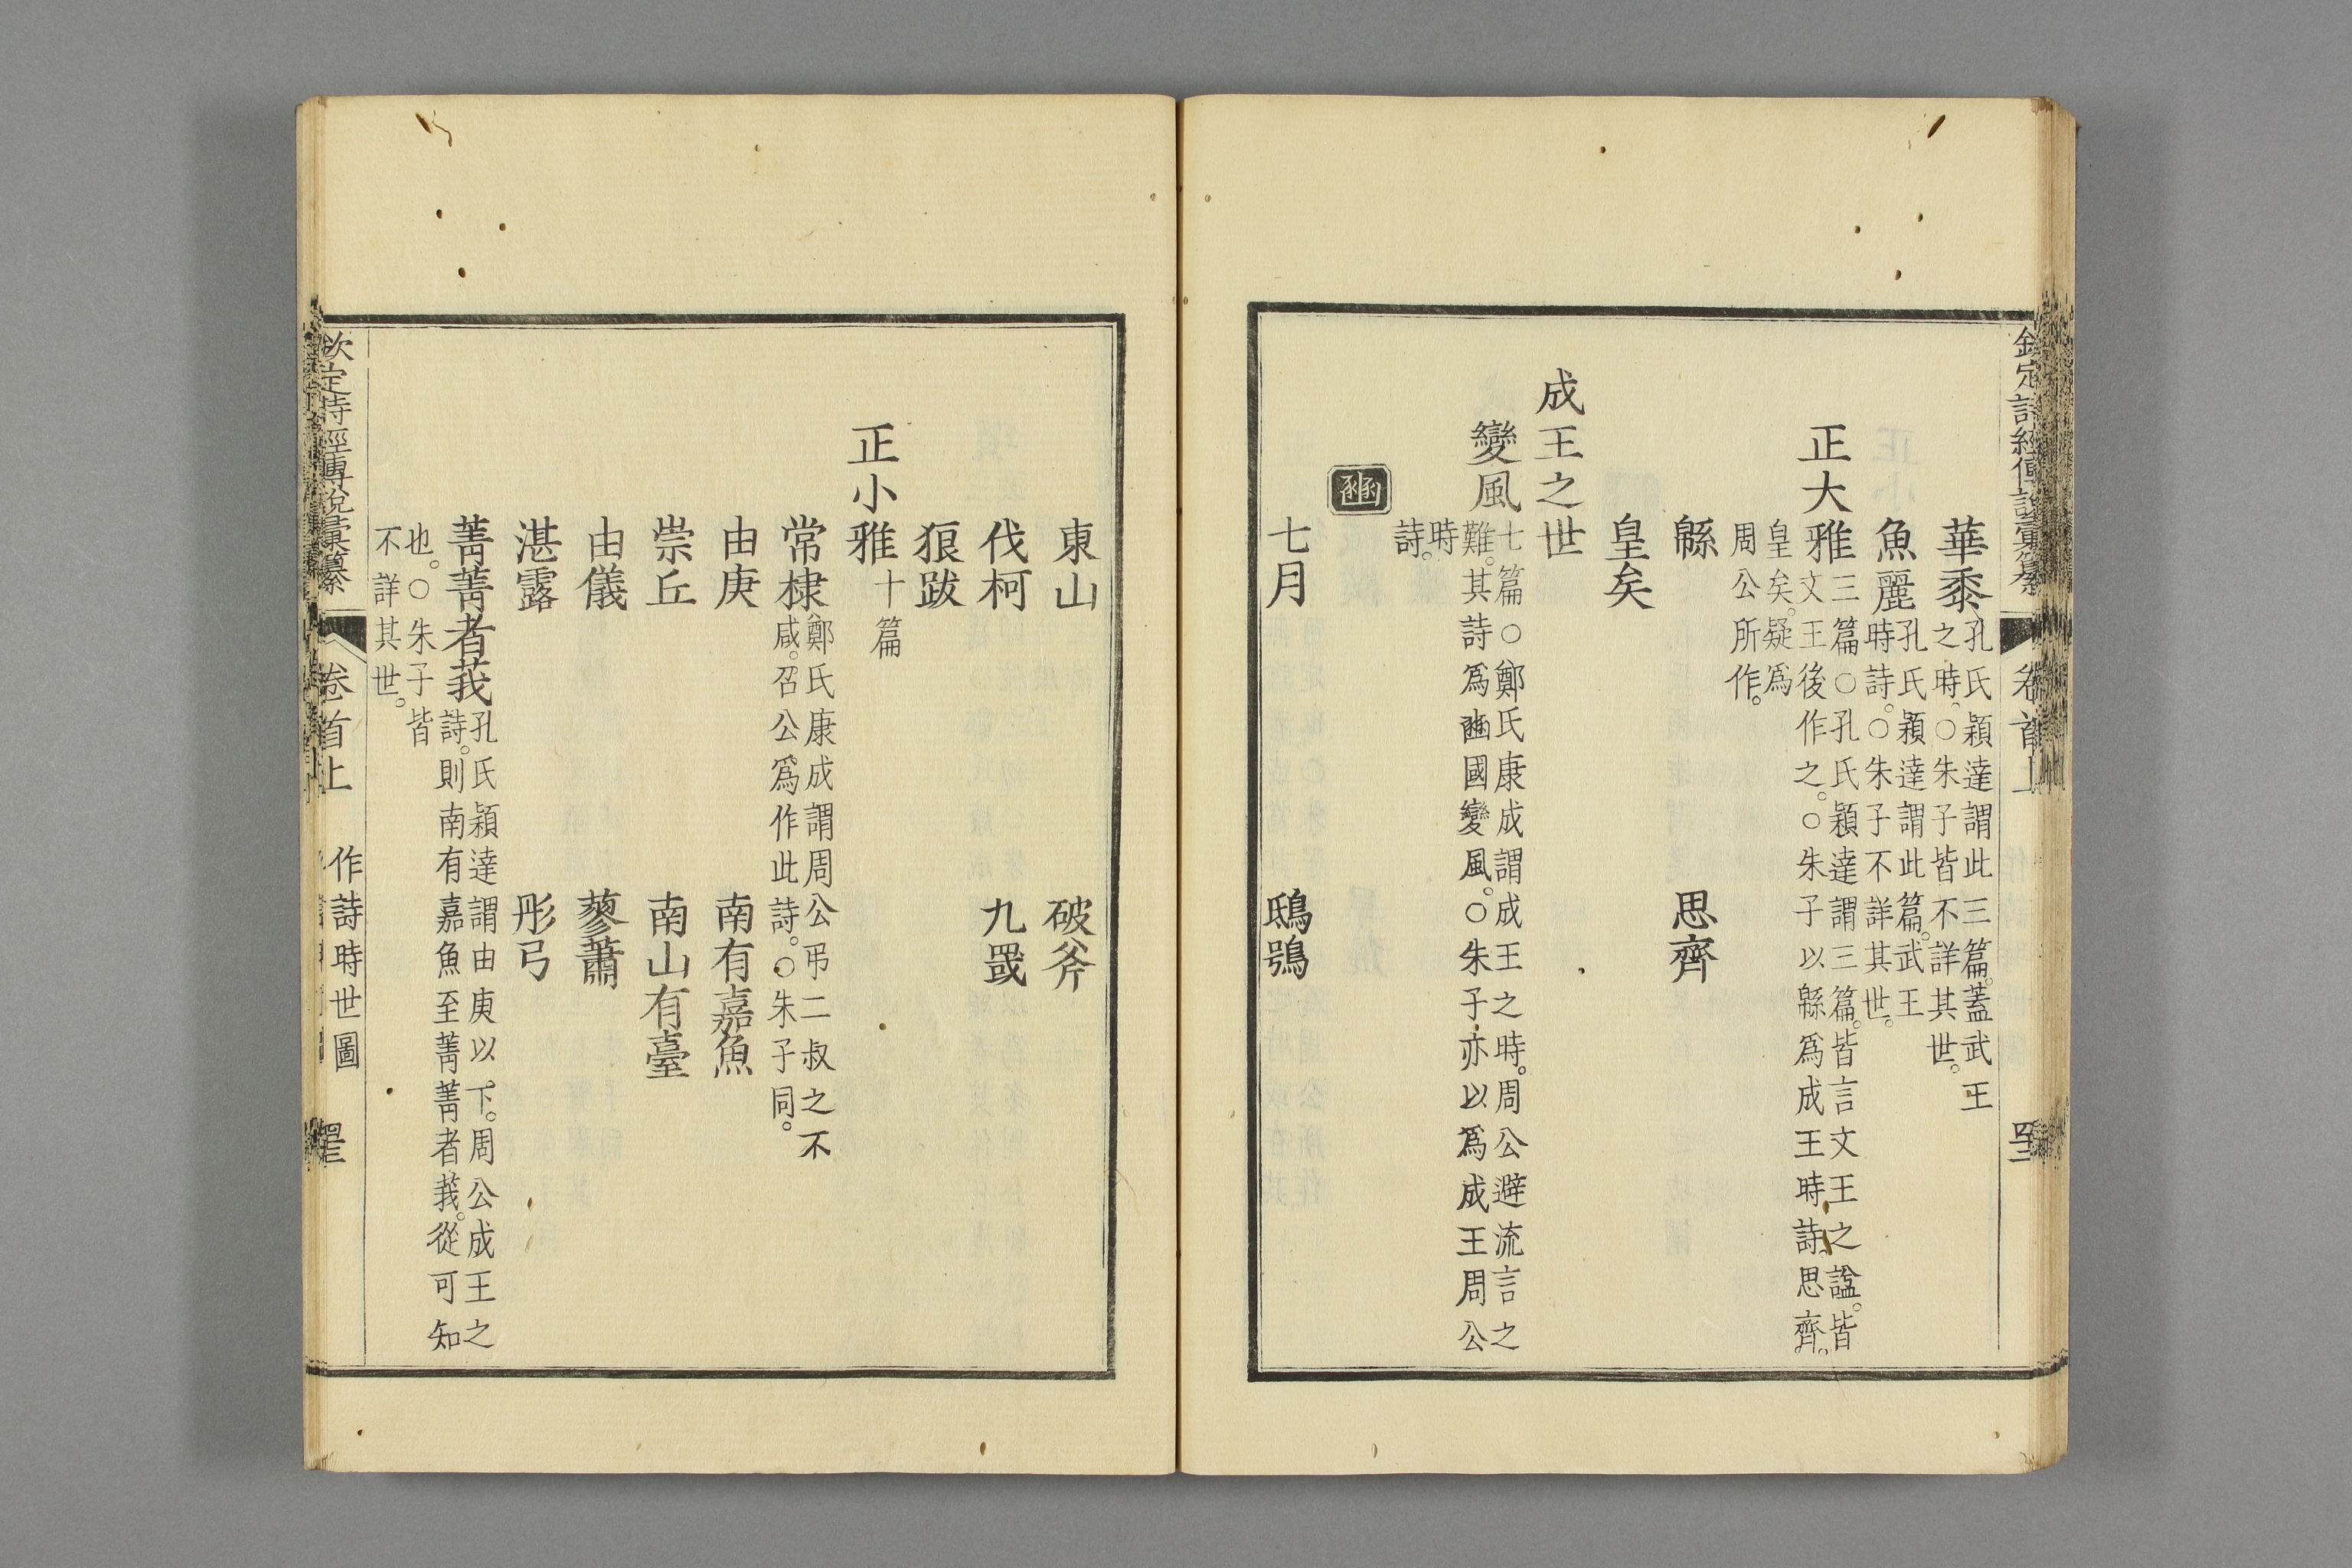 華黍孔氏穎達謂此三篇。蓋武王
之時。○朱子皆不詳其世。
魚麗孔氏穎達謂此篇。武王
時詩。○朱子不詳其世。
正大雅三篇○孔氏穎達謂三篇。皆言文王之諡。皆
文王後作之。○朱子以緜爲成王時詩。思齊。
皇矣。疑爲
周公所作。
緜　思齊
皇矣
成王之世
變風七篇○鄭氏康成謂成王之時。周公避流言之
難。其詩爲豳國變風。○朱子亦以爲成王周公
時
詩。
豳
七月　鴟鴞
東山　破斧
伐柯　九罭
狼跋
正小雅十篇
常棣鄭氏康成謂周公弔二叔之不
咸。召公爲作此詩。○朱子同。
由庚　南有嘉魚
崇丘　南山有臺
由儀　蓼蕭
湛露　彤弓
菁菁者莪孔氏穎達謂由庚以下。周公成王之
詩。則南有嘉魚至菁菁者莪。從可知
也。○朱子皆
不詳其世。
欽定詩經傳說彙纂　卷首上　作詩時世圖